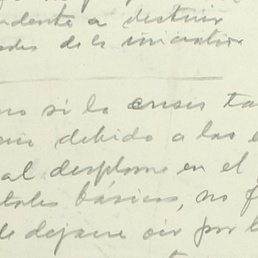 ndente a destruir
ades de la iniciativa
no si la crisis ta
debido a las e
al desplome en el
tales básicos, no f
de dejarse oir por l